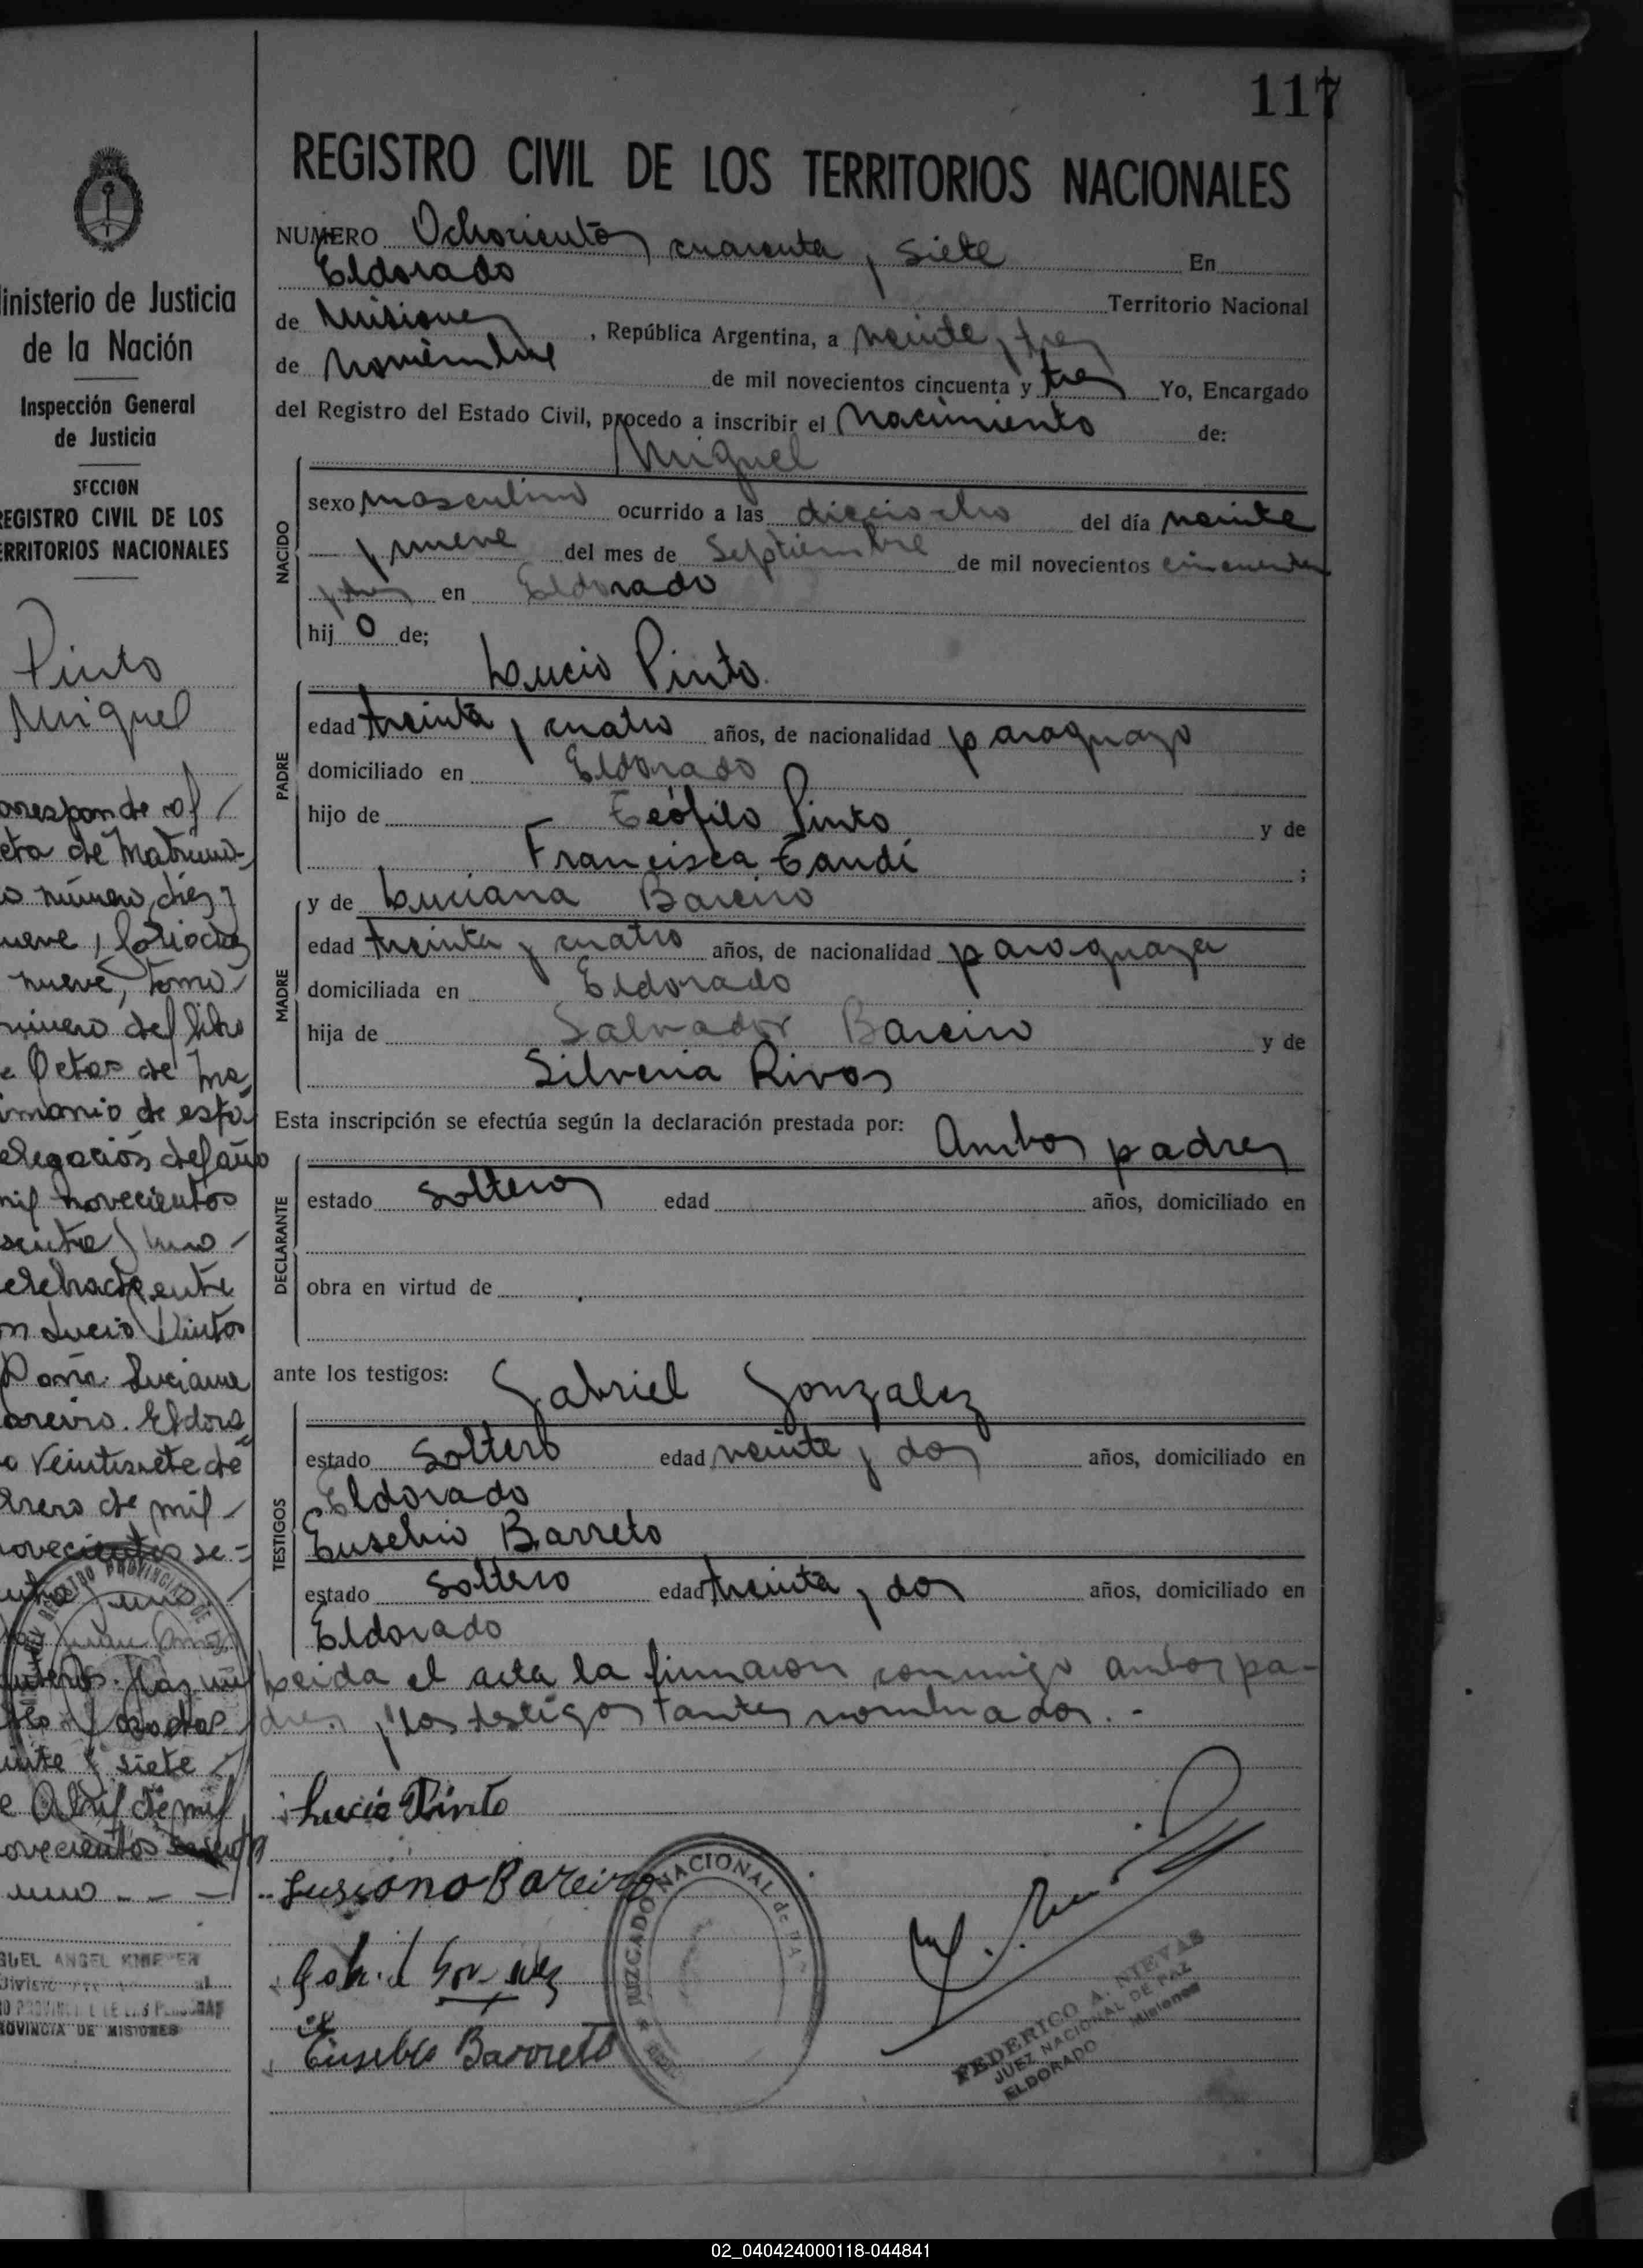 117
REGISTRO CIVIL DE LOS TERRITORIOS NACIONALES
NUMERO Ochocientos cuarenta y siete En
Eldorado Territorio Nacional
de Misiones, República Argentina, a veinte y tres
de Noviembre de mil novecientos cincuenta y tres Yo, Encargado
del Registro del Estado Civil, procedo a inscribir el Nacimiento de:
Miguel
NACIDO
sexo masculino ocurrido a las dieciocho del día veinte
y nueve del mes de Septiembre de mil novecientos cincuenta
y tres en Eldorado
hijo de;
Lucio Pinto.
PADRE
edad treinta y cuatro años, de nacionalidad paraguayo
domiciliado en Eldorado
hijo de Teófilo Pinto y de
Francisca Tandí ;
y de Luciana Bareiro
MADRE
edad treinta y cuatro años, de nacionalidad paraguaya
domiciliada en Eldorado
hija de Salvador Bareiro y de
Silveria Rivas
Esta inscripción se efectúa según la declaración prestada por: Ambos padres
DECLARANTE
estado solteros edad años, domiciliado en
obra en virtud de
ante los testigos: Gabriel Gonzalez
TESTIGOS
estado soltero edad veinte y dos años, domiciliado en
Eldorado
Eusebio Barreto
estado soltero edad treinta y dos años, domiciliado en
Eldorado
Leida el acta la firmaron conmigo ambos pa-
dres y los testigos antes nombrados. -
Lucio Pinto
Lusiano Bareiro
Gabriel Gonzalez
Eusebio Barreto
JUZGADO NACIONAL de PAZ
FEDERICO A. NIEVAS
JUEZ NACIONAL DE PAZ
ELDORADO Misiones
inisterio de Justicia
de la Nación
Inspección General
de Justicia
SECCION
REGISTRO CIVIL DE LOS
ERRITORIOS NACIONALES
Pinto
Miguel
orresponde al
cta de Matrimo-
o número diez y
ueve, folio diez
nueve, tomo
mero del libro
e Actas de Ma
imonio de esta
elegación del año
mil novecientos
senta y uno
n Lucio Pintos
Doña Luciana
areiro. Eldora
o Veintisiete de
brero de mil
ovecientos se=
enta y uno.
inte y siete
e Abril de mil
ovecientos sesenta
uno - - -
GUEL ANGEL
PROVINCIA DE MISIONES
02_040424000118-044841